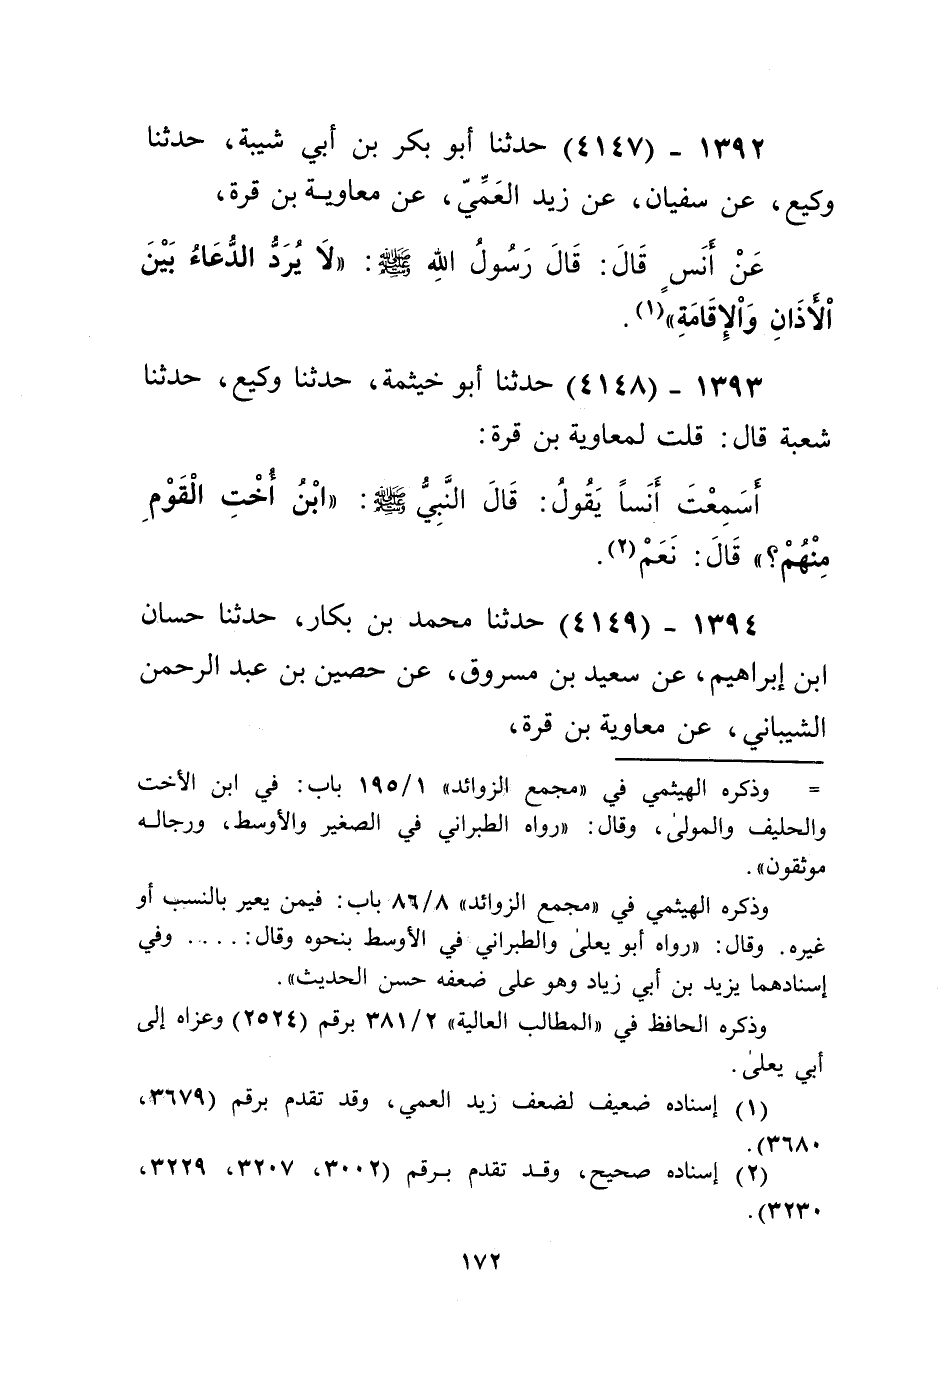 ١٣٩٢ - (٤١٤٧) حدثنا أبو بكر بن أبي شيبة، حدثنا
وكيع، عن سفيان، عن زيد العَمِّيّ، عن معاويـة بن قرة،
عَنْ أَنَسٍ قَالَ: قَالَ رَسُولُ اللهِ ﷺ: «لَا يُرَدُّ الدُّعَاءُ بَيْنَ
اْلأَذَانِ وَاْلإِقَامَةِ»(١).
١٣٩٣ - (٤١٤٨) حدثنا أبو خيثمة، حدثنا وكيع، حدثنا
شعبة قال: قلت لمعاوية بن قرة:
أَسَمِعْتَ أَنَساً يَقُولُ: قَالَ النَّبِيُّ ﷺ: «ابْنُ أُخْتِ الْقَوْمِ
مِنْهُمْ؟» قَالَ: نَعَمْ(٢).
١٣٩٤ - (٤١٤٩) حدثنا محمد بن بكار، حدثنا حسان
ابن إبراهيم، عن سعيد بن مسروق، عن حصين بن عبد الرحمن
الشيباني، عن معاوية بن قرة،
= وذكره الهيثمي في «مجمع الزوائد» ١/ ١٩٥ باب: في ابن الأخت
والحليف والمولىٰ، وقال: «رواه الطبراني في الصغير والأوسط، ورجالـه
موثقون».
وذكره الهيثمي في «مجمع الزوائد» ٨/ ٨٦ باب: فيمن يعير بالنسب أو
غيره. وقال: «رواه أبو يعلىٰ والطبراني في الأوسط بنحوه وقال:.... وفي
إسنادهما يزيد بن أبي زياد وهو على ضعفه حسن الحديث».
وذكره الحافظ في «المطالب العالية» ٢/ ٣٨١ برقم (٢٥٢٤) وعزاه إلى
أبي يعلىٰ.
(١) إسناده ضعيف لضعف زيد العمي، وقد تقدم برقم (٣٦٧٩،
٣٦٨٠).
(٢) إسناده صحيح، وقـد تقدم بـرقم (٣٠٠٢، ٣٢٠٧، ٣٢٢٩،
٣٢٣٠).
١٧٢